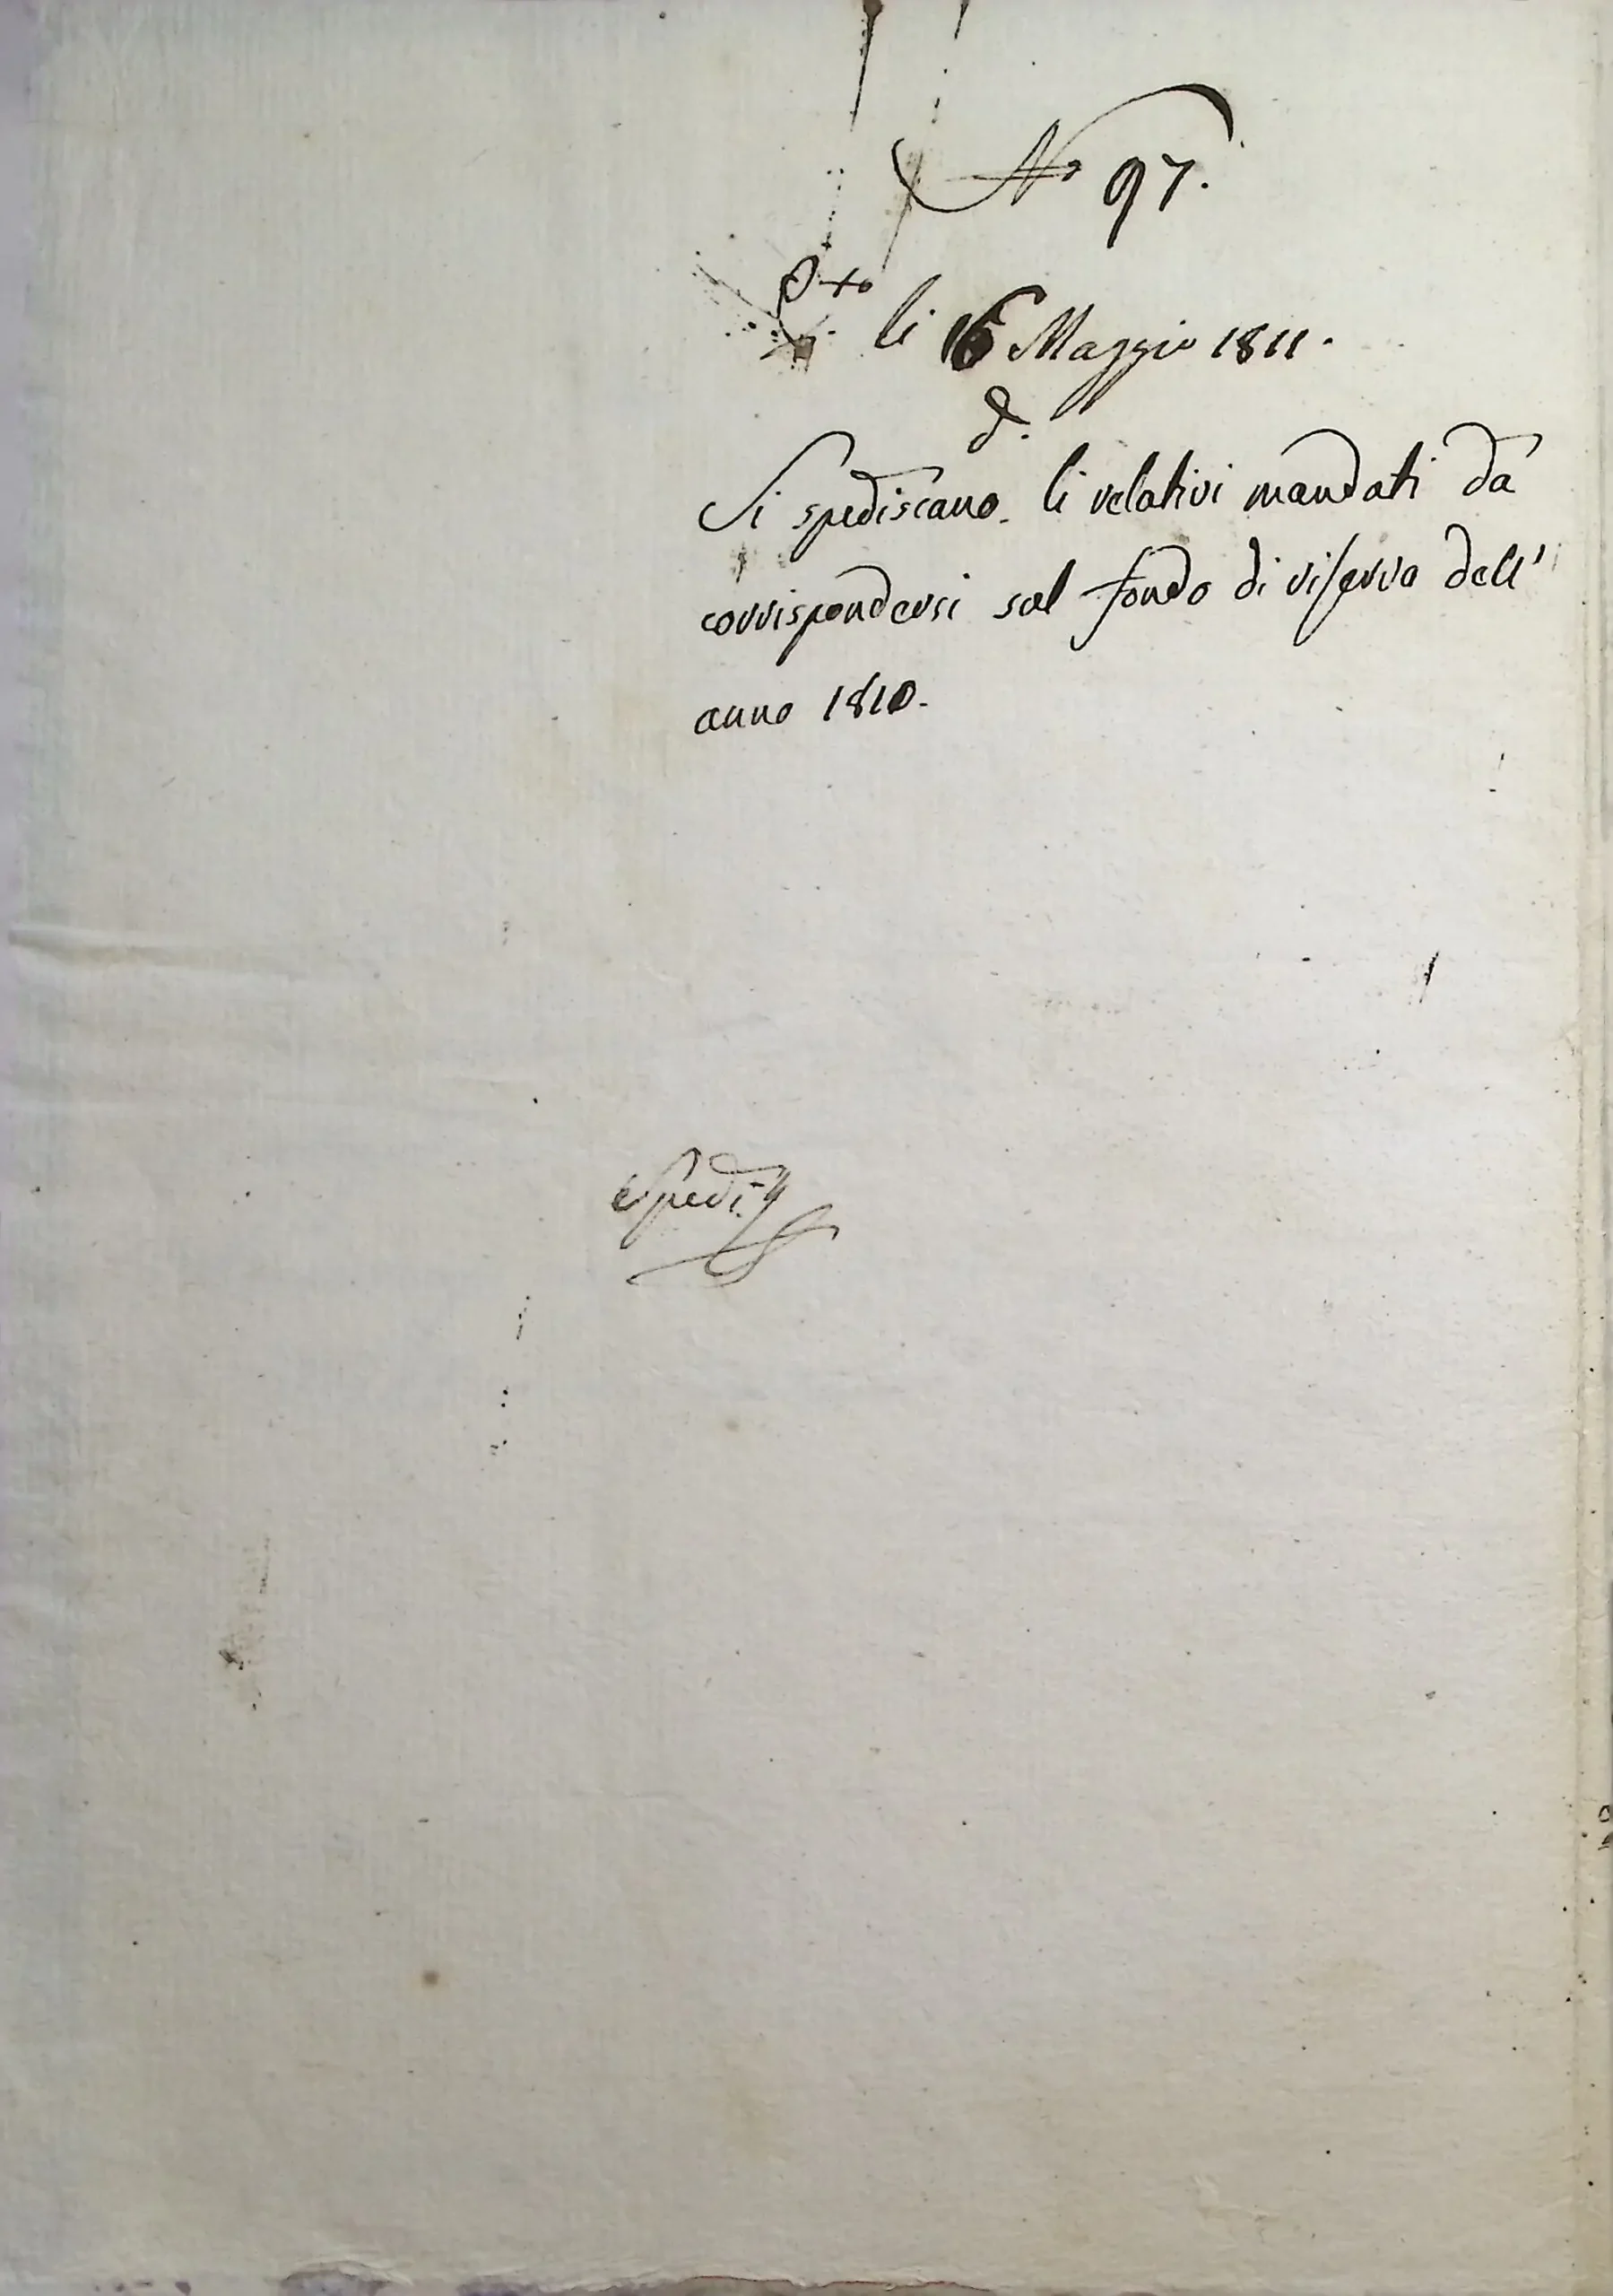 N° 97.
li 16 Maggio 1811.
d.
Si spediscano li relativi mandati da
corrispondersi sul fondo di riserva dell'
anno 1810.
Spedi